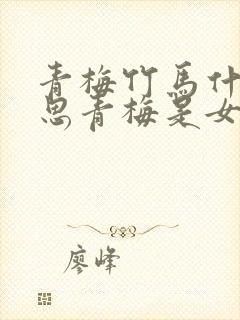 青梅竹馬什
思青梅是女
廖峰